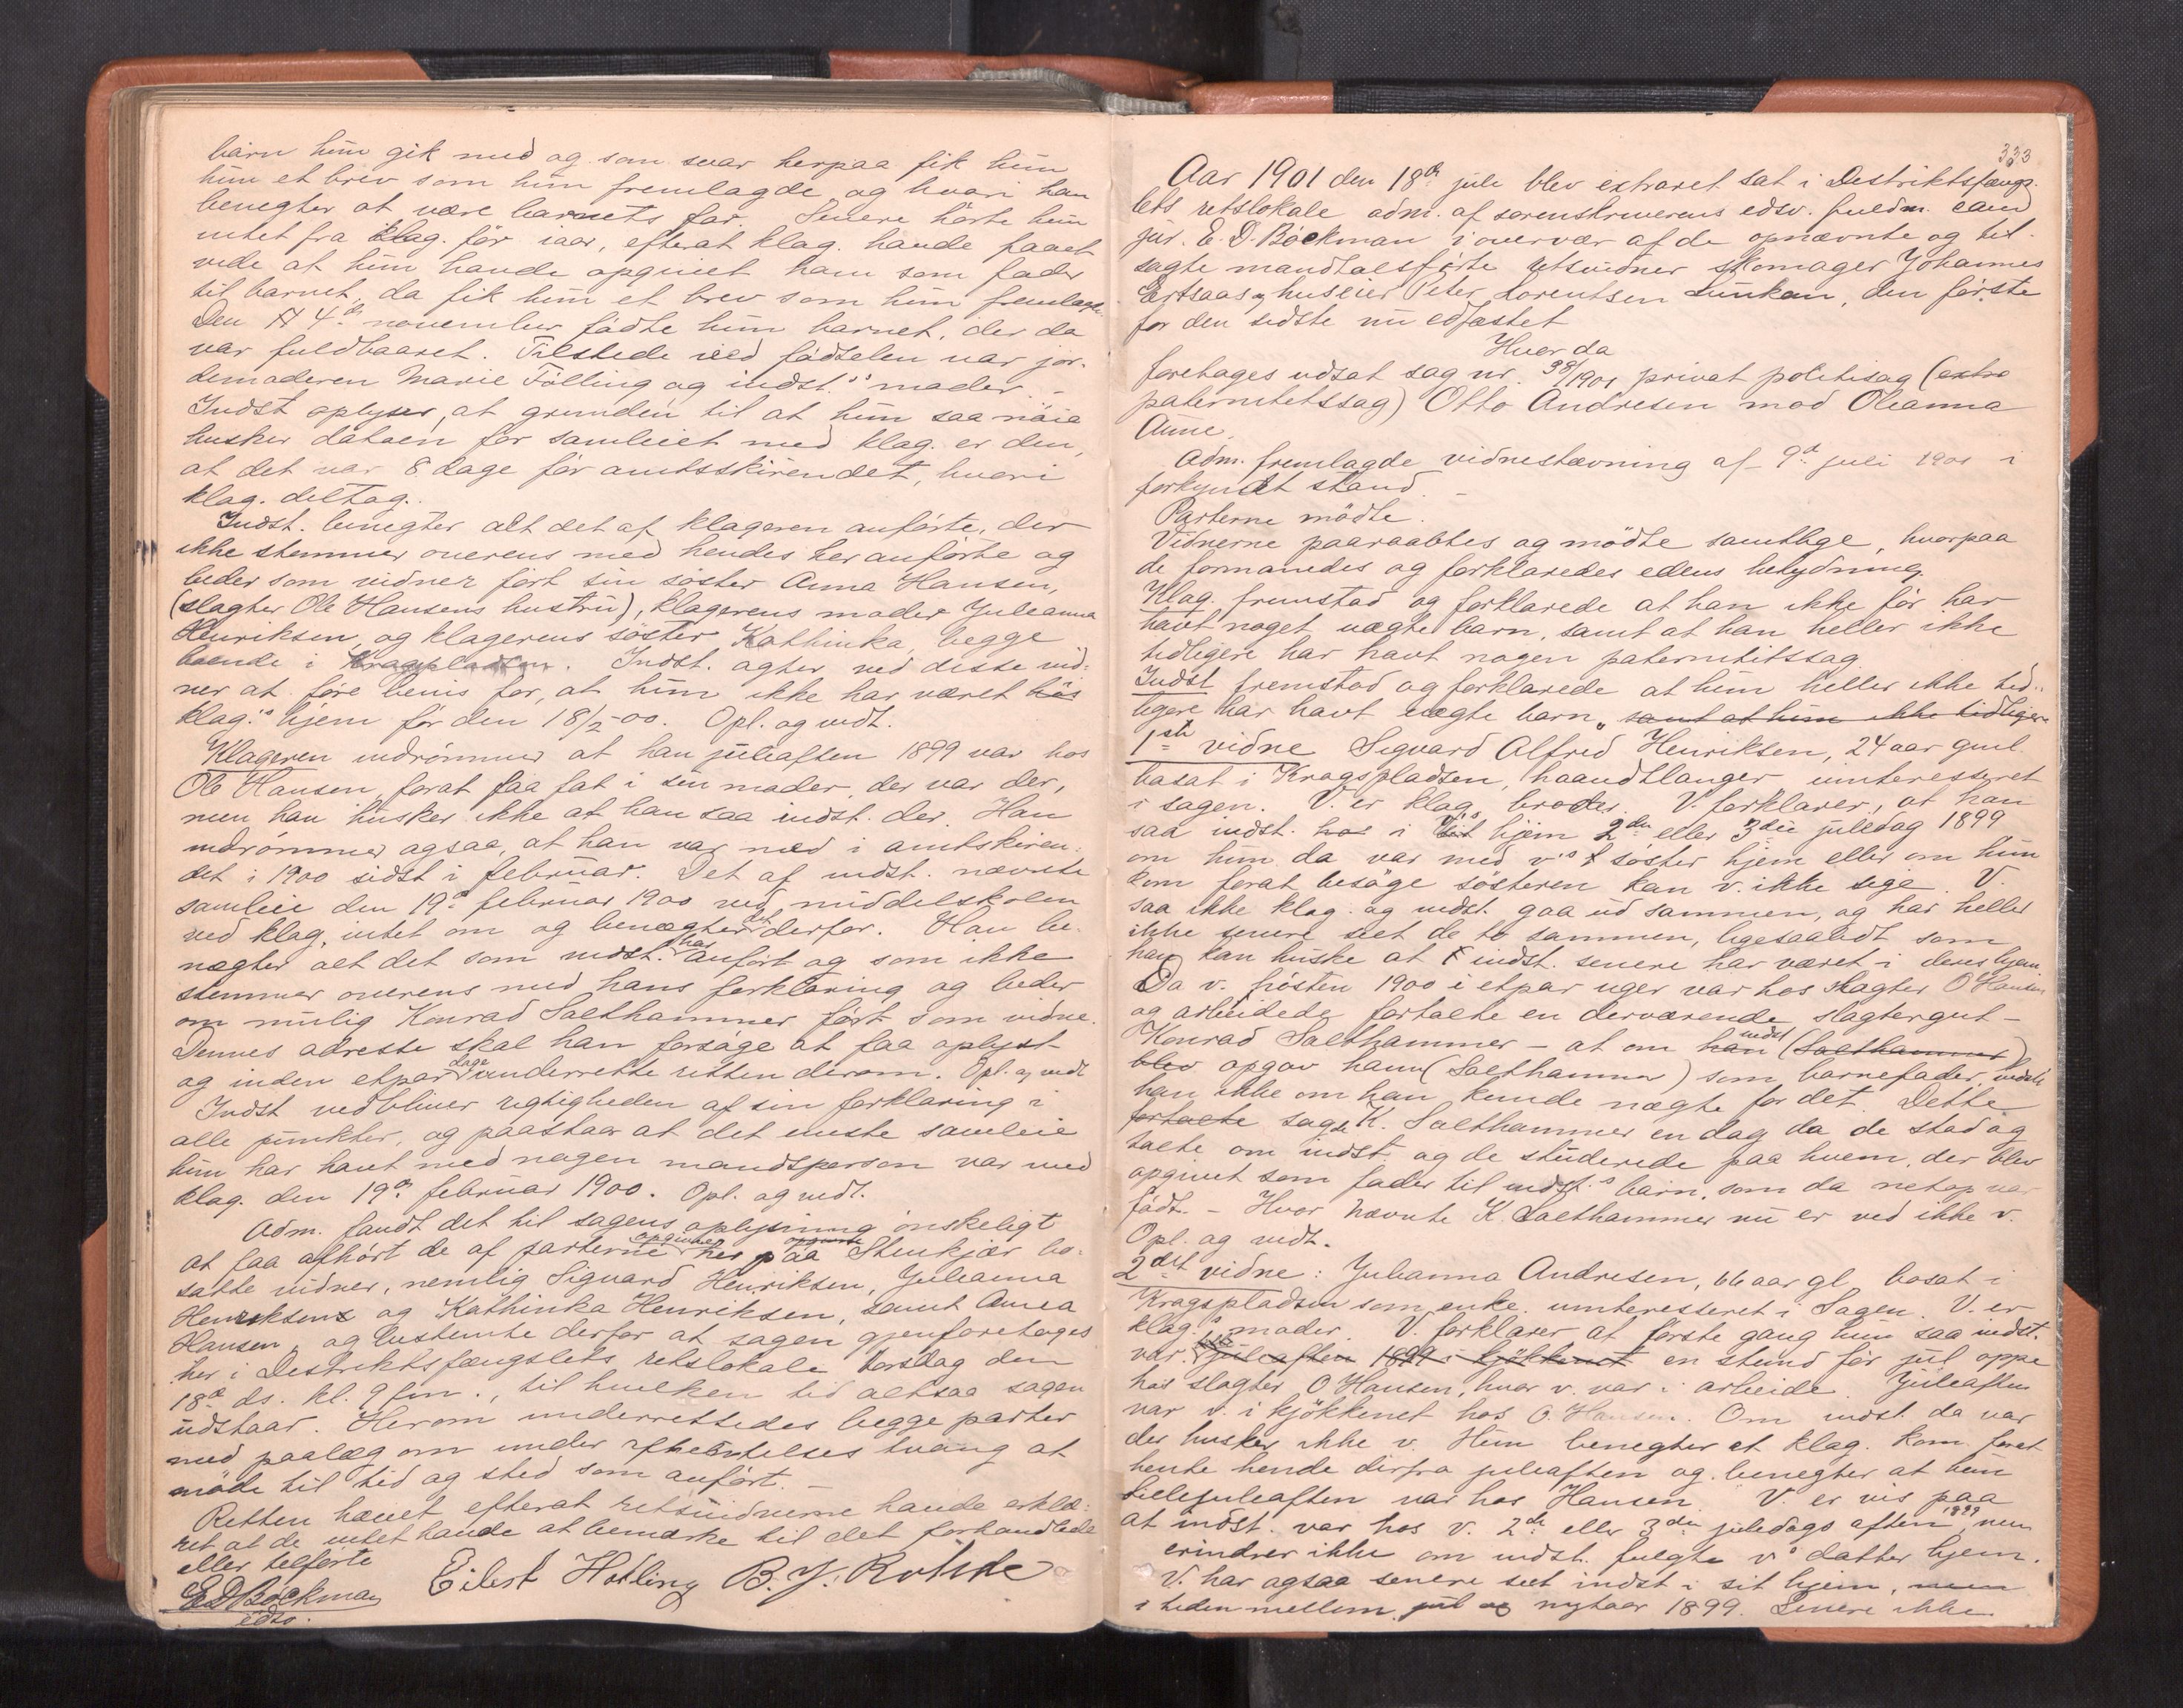 barn hun gik med og som svar herpaa fik hun
hun et brev som hun fremlagde og hvori han
benegter at være barnets far. Senere hörte hun
intet fra klag. för iaar, efterat klag. havde faaet
vide at hun havde opgivet ham som fader
til barnet, da fik hun et brev som hun fremlagde
Den 4de november födte hun barnet, der da
var fuldbaaret. Tilstede ved födselen var jor-
demoderen Marie Fölling og indst.s moder. -
Indst oplyser, at grunden til at hun saa nöie
husker datoen for samleiet med klag. er den,
at det var 8 dage för amtsskirendet, hvori
klag. deltog.
Indst. benegter alt det af klageren anförte, der
ikke stemmer overens med hendes her anförte og
beder som vidner fört sin söster Anna Hansen,
(slagter Ole Hansens hustru), klagerens moder Juleanna
Henriksen, og klagerens söster Kathinka, begge
boende i Kragspladsen. Indst. agter ved disse vid-
ner at före bevis for, at hun ikke har været hos
klag.s hjem för den 18/2-00. Opl. og vedt.
Klageren indrömmer at han juleaften 1899 var hos
Ole Hansen forat faa fat i sin moder, der var der,
men han husker ikke at han saa indst. der. Han
indrömmer ogsaa, at han var med i amtskiren-
det i 1900 sidst i februar. Det af indst. nævnte
samleie den 19de februar 1900 ved middelskolen
ved klag. intet om og benægter det derfor. Han be-
nægter alt det som indst. har anfört og som ikke
stemmer overens med hans forklaring og beder
om mulig Konrad Salthammer fört som vidne.
Dennes adresse skal han forsöge at faa oplyst
og inden etpar dage underrette retten derom. Opl. og vedt
Indst vedbliver rigtigheden af sin forklaring i
alle punkter, og paastaar at det eneste samleie
hun har havt med nogen mandsperson var med
klag. den 19de februar 1900. Opl. og vedt.
Adm. fandt det til sagens oplysning önskeligt
at faa afhört de af parterne opgivne her paa Stenkjær bo-
satte vidner, nemlig Sigvard Henriksen, Juleanna
Henriksen og Kathinka Henriksen, samt Anna
Hansen, og bestemte derfor at sagen gjenforetages
her i Destriktsfængslets retslokale torsdag den
18de ds. kl. 9 fm., til hvilken tid altsaa sagen
udstaar. Herom underrettedes begge parter
med paalæg om under afhentelses tvang at
möde til tid og sted som anfört. -
Retten hævet efterat retsvidnerne havde erklæ-
ret at de intet havde at bemærke til det forhandlede
eller tilförte
E D Böckman
edsv.
Eilert Hotling B. J. Rothe
333
Aar 1901 den 18de juli blev extraret sat i Destriktsfængs-
lets retslokale adm. af sorenskriverens edsv. fuldm. cand
jur. E. D. Böckman i overvær af de opnævnte og til-
sagte mandtalsförte retsvidner skomager Johannes
Ertsaas og huseier Peter Lorentsen Lunkan, den förste
for den sidste nu edfæstet
Hvorda
foretages udsat sag nr. 38/1901 privat politisag (extra
paternitetssag) Otto Andresen mod Oleanna
Aune.
Adm. fremlagde vidnestævning af 9de juli 1901 i
forkyndt stand. -
Parterne mödte.
Vidnerne paaraabtes og mödte samtlige, hvorpaa
de formanedes og forklaredes edens betydning.
Klag. fremstod og forklarede at han ikke för har
havt noget uægte barn, samt at han heller ikke
tidligere har havt nogen paternitetssag
Indst fremstod og forklarede at hun heller ikke tid-
ligere har havt uægte barn, samt at hun ikke tidligere
1ste vidne Sigvard Alfred Henriksen, 24 aar gml.
bosat i Kragspladsen, haandtlanger uinteresseret
i sagen. V. er klag.s broder. V. forklarer, at han
saa indst. hos i v's sit hjem 2den eller 3die juledag 1899
om hun da var med v's söster hjem eller om hun
kom forat besöge sösteren kan v. ikke sige. V.
saa ikke klag. og indst. gaa ud sammen, og har heller
ikke senere seet de to sammen, ligesaalidt som
han kan huske at indst. senere har været i deres hjem.
Da v. hösten 1900 i etpar uger var hos slagter O Hansen
og arbeidede fortalte en derværende slagtergut -
Konrad Salthammer - at om han indst (Salthammer)
blev opgav ham (Salthammer) som barnefader, vidste
han ikke om han kunde nægte for det. Dette
fortalte sagde K. Salthammer en dag da de stod og
talte om indst. og de studerede paa hvem, der blev
opgivet som fader til indst.s barn, som da netop var
födt. - Hvor nævnte K. Salthammer nu er ved ikke v.
Opl. og vedt.
2det vidne: Julianna Andresen, 66 aar gl. bosat i
Kragspladsen som enke. uinteresseret i Sagen. V. er
klag.s moder. V. forklarer at förste gang hun saa indst.
var juleaften 1899 i kjökkenet en stund för jul oppe
hos slagter O Hansen, hvor v. var i arbeide. Juleaften
var v. i kjökkenet hos O. Hansen. Om indst. da var
der husker ikke v. Hun benegter at klag. kom forat
hente hende derfra juleaften og benegter at hun
Lillejuleaften var hos Hansen. V. er vis paa
at indst. var hos v. 2den eller 3die juledags aften 1899, men
erindrer ikke om indst. fulgte v's datter hjem.
V. har ogsaa senere seet indst i sit hjem, men
i tiden mellem jul og nytaar 1899. Senere ikke